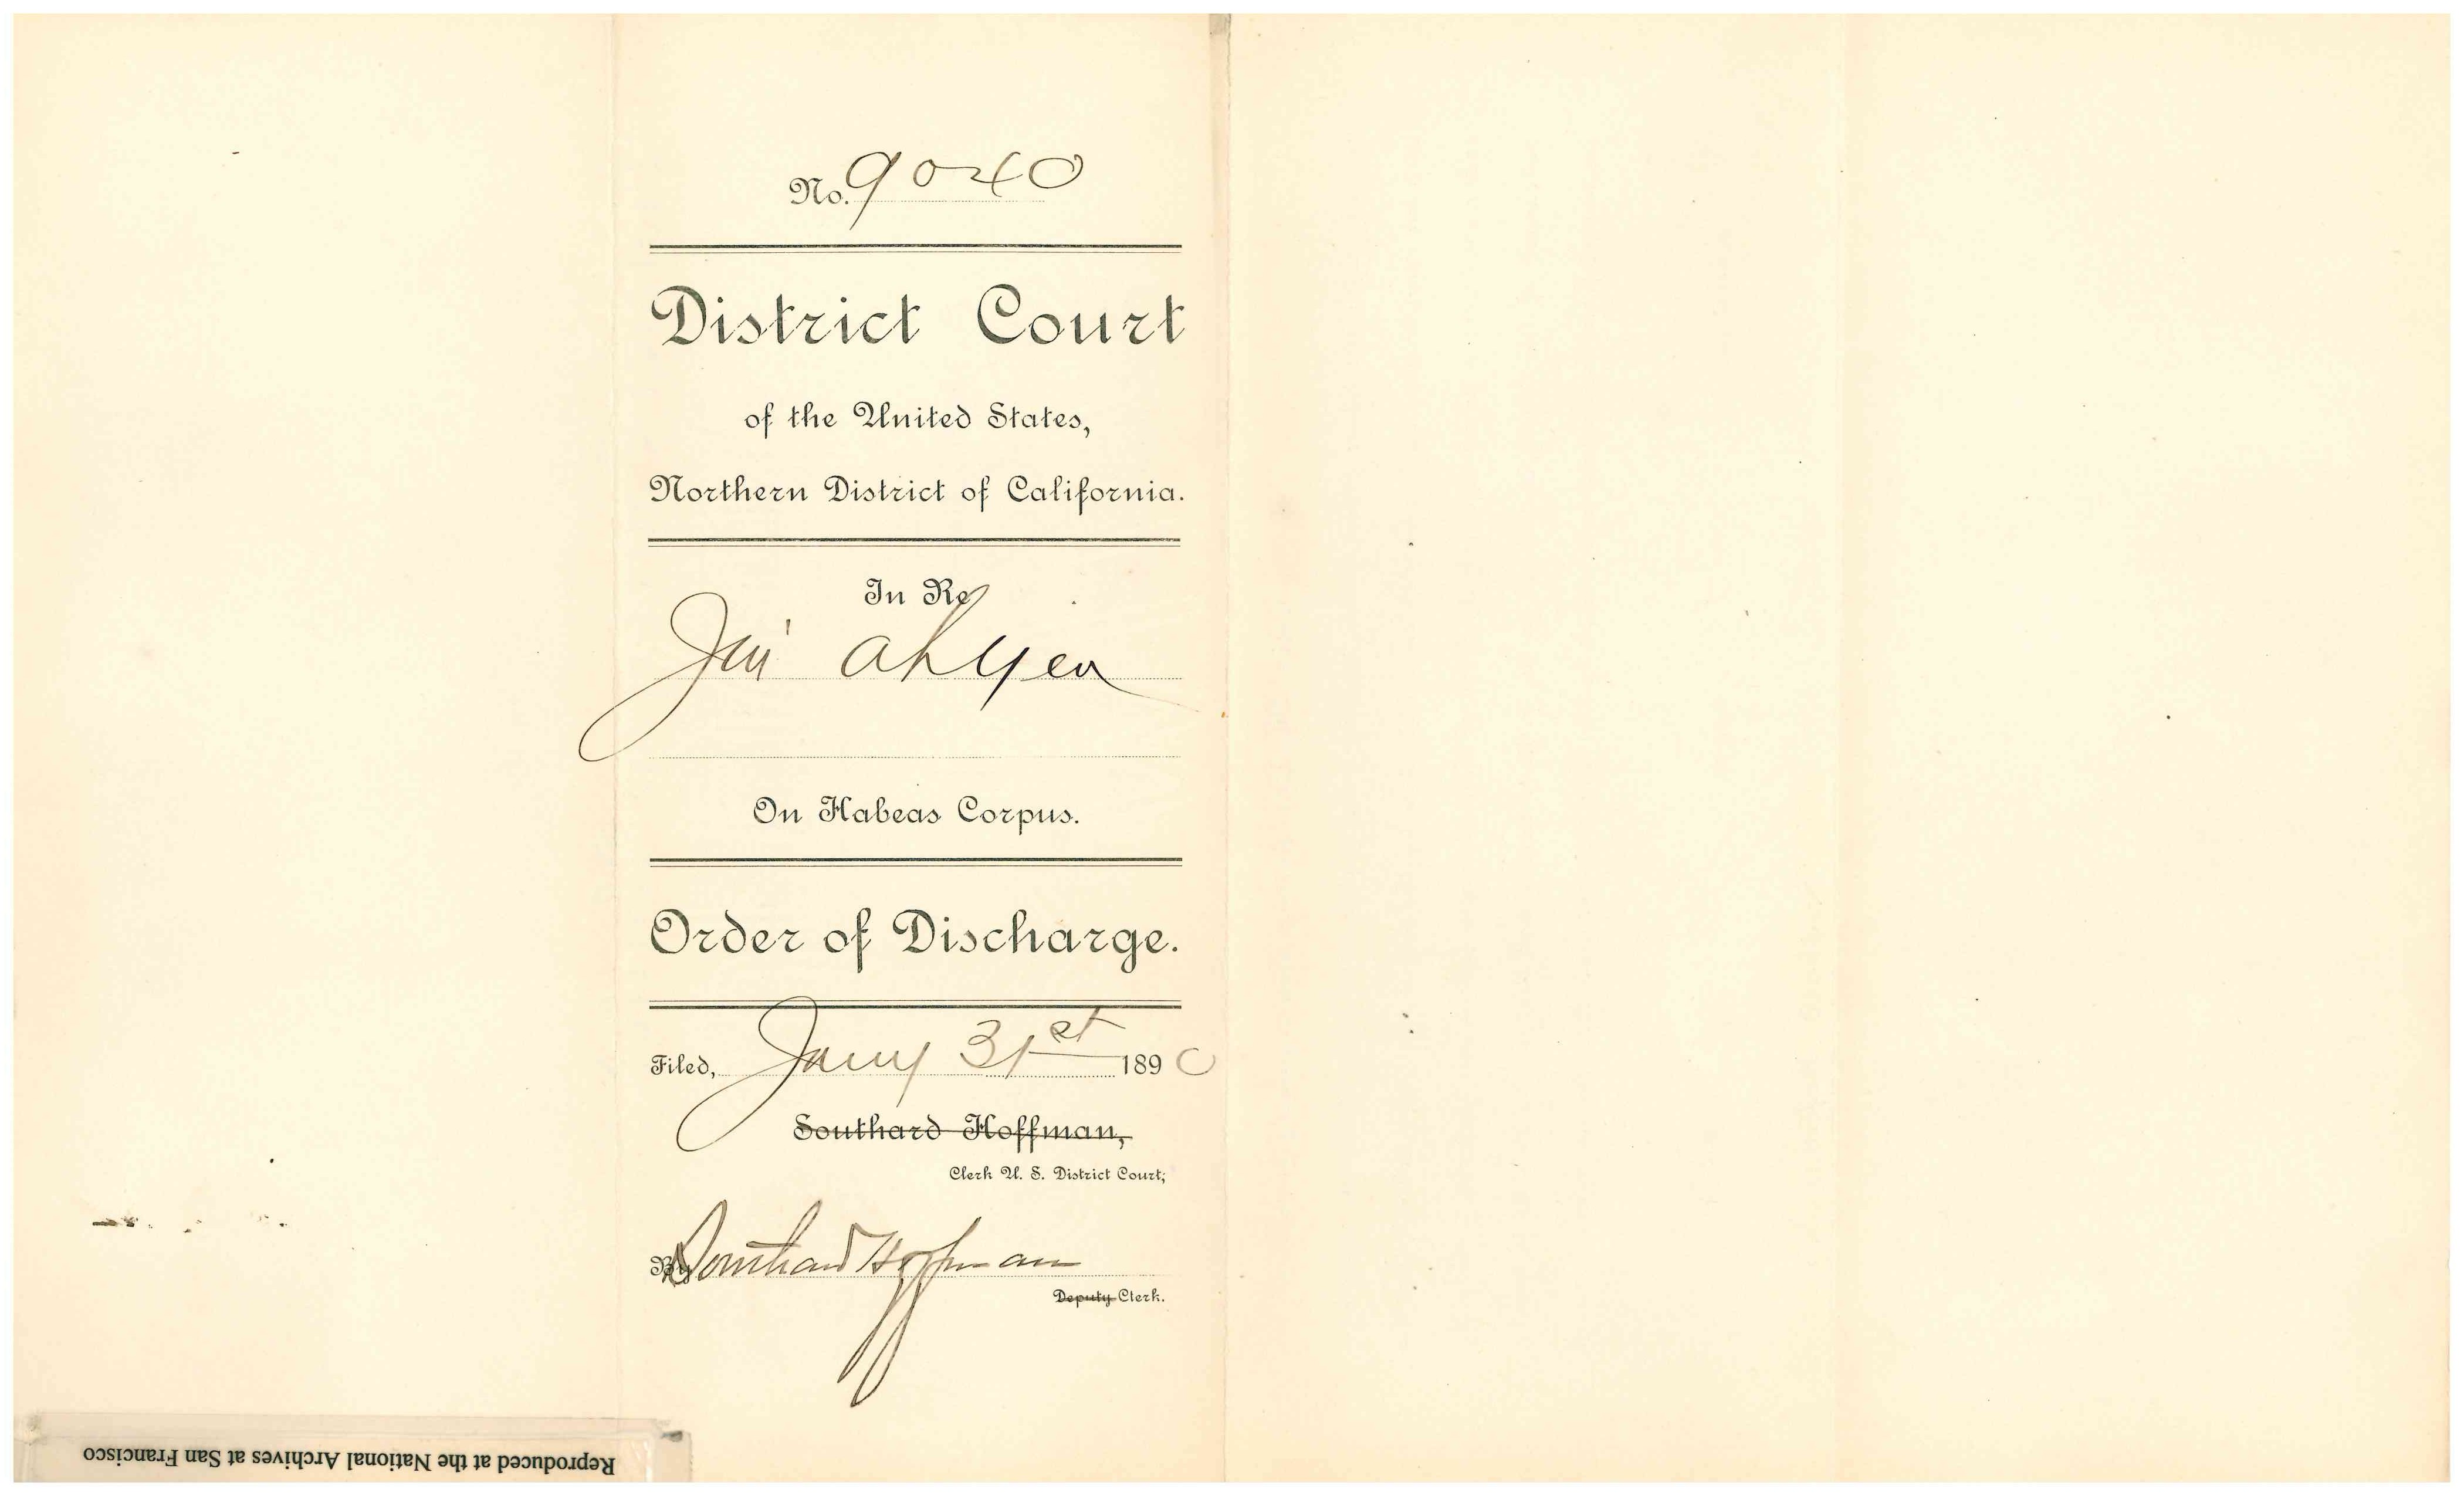 No. 9040
District Court
of the United States,
Northern District of California.
In Re
Jin Ah Yen
On Habeas Corpus.
Order of Discharge.
Filed, Jany 31st 1890
Southard Hoffman,
Clerk U. S. District Court;
By Southard Hoffman
Deputy Clerk.
Reproduced at the National Archives at San Francisco